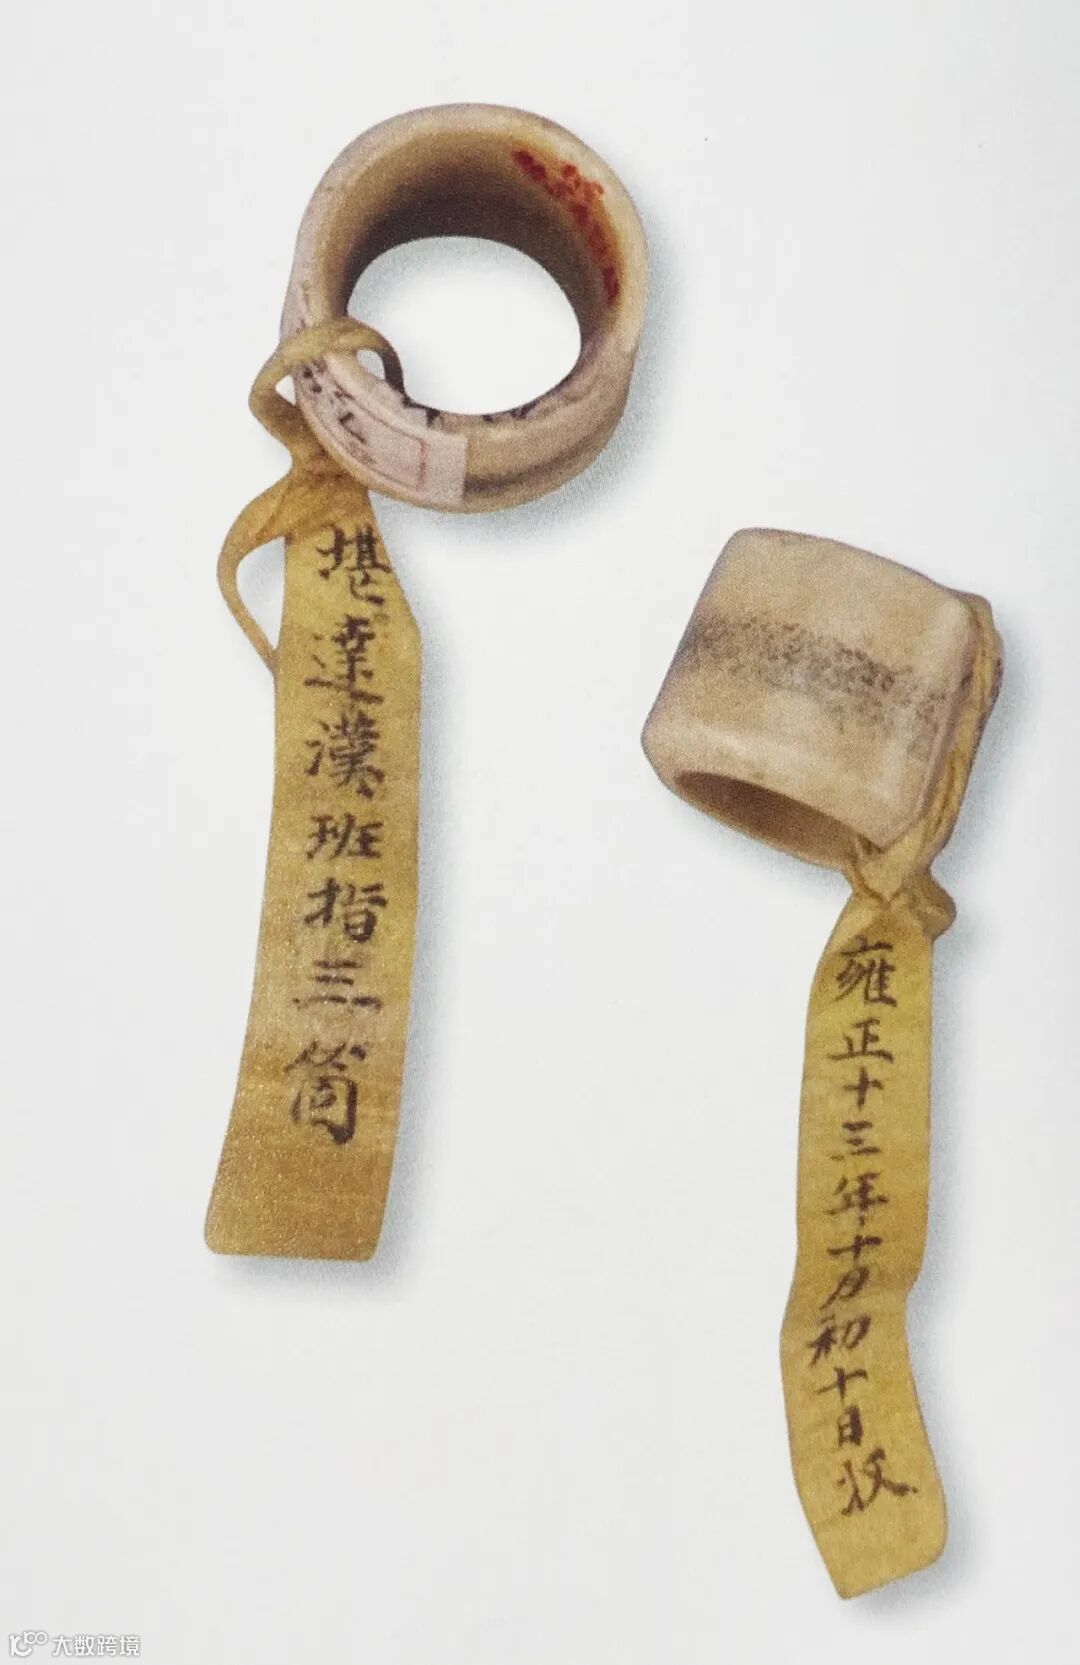 堪達漢班指三箇
雍正十三年十月初十日收
大数跨境